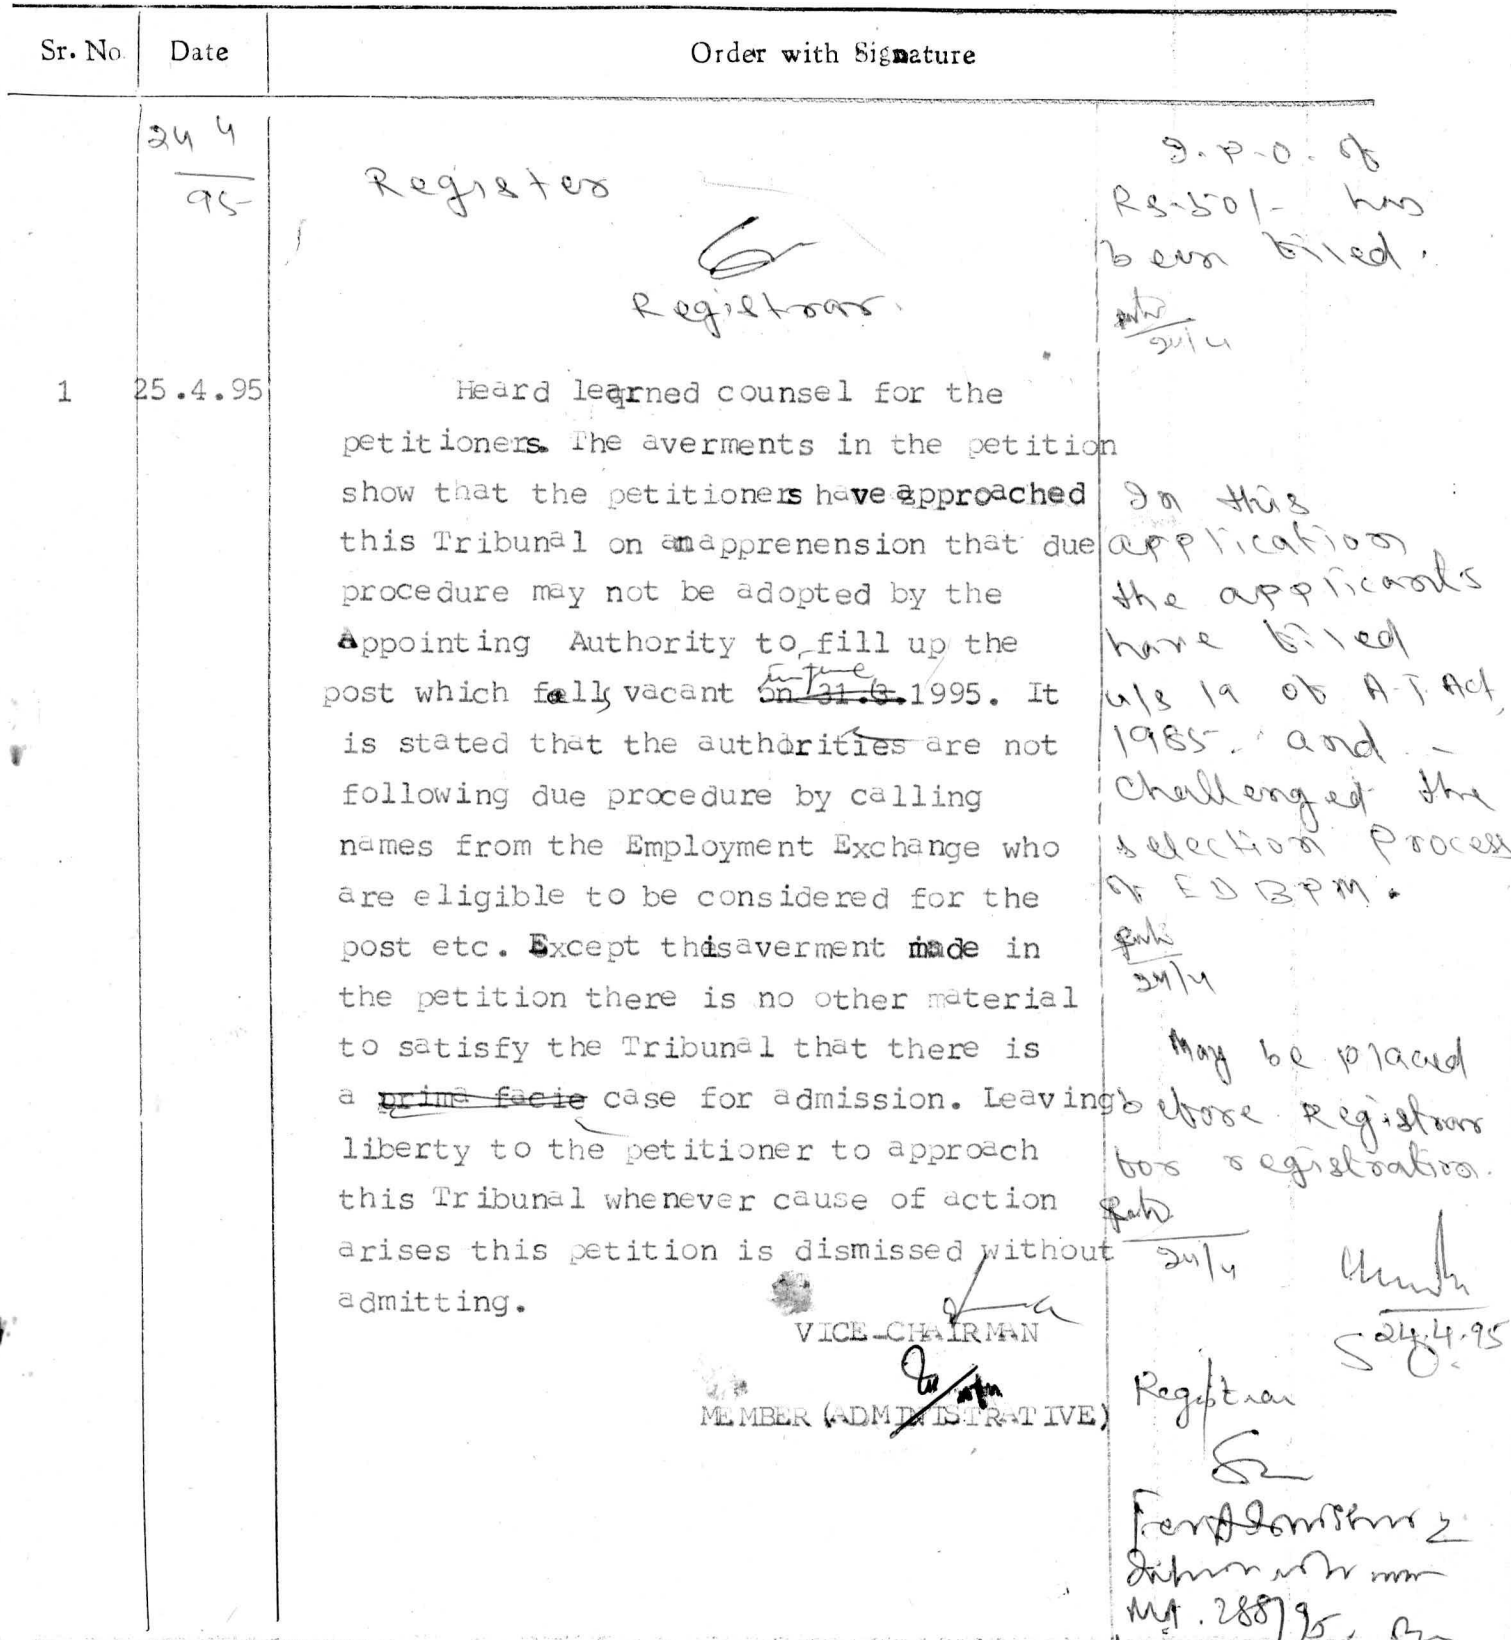 Sr. No. Date Order with Signature
24 4
95
Register
Registrar.
I.P.O. of
Rs. 50/- has
been filed.
24/4
1 25.4.95 Heard learned counsel for the
petitioners. The averments in the petition
show that the petitioners have approached
this Tribunal on an apprenension that due
procedure may not be adopted by the
Appointing Authority to fill up the
post which falls vacant in June 1995. It
is stated that the authorities are not
following due procedure by calling
names from the Employment Exchange who
are eligible to be considered for the
post etc. Except this averment made in
the petition there is no other material
to satisfy the Tribunal that there is
a prima facie case for admission. Leaving
liberty to the petitioner to approach
this Tribunal whenever cause of action
arises this petition is dismissed without
admitting.
VICE-CHAIRMAN
MEMBER (ADMINISTRATIVE)
In this
application
the applicants
have filed
u/s 19 of A.T. Act,
1985. and
challenged the
selection process
of EDBPM.
24/4
May be placed
before Registrar
for registration.
24/4
24.4.95
Registrar
For Admission &
MA. 288/95.